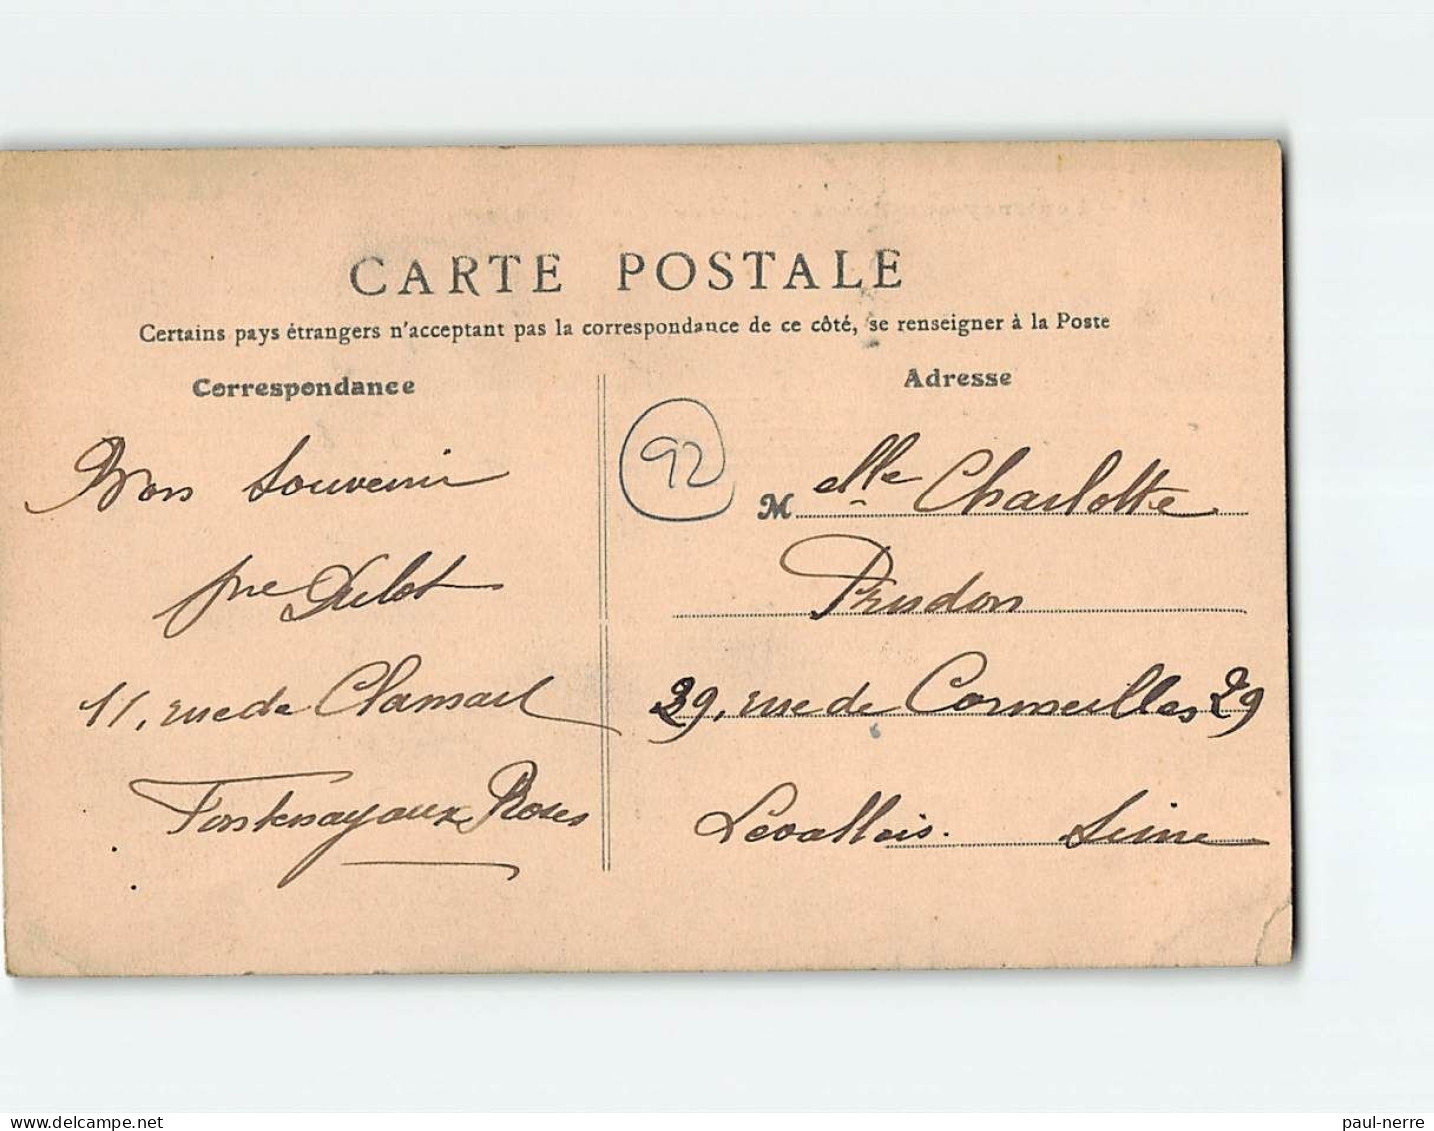 CARTE POSTALE
Certains pays étrangers n'acceptant pas la correspondance de ce côté, se renseigner à la Poste
Correspondance
Bon Souvenir
Dulot
11, rue de Clamart
Fontenay aux Roses
Adresse
92
Melle Charlotte
Prudon
29, rue de Cormeilles 29
Levallois. Seine
paul-nerre